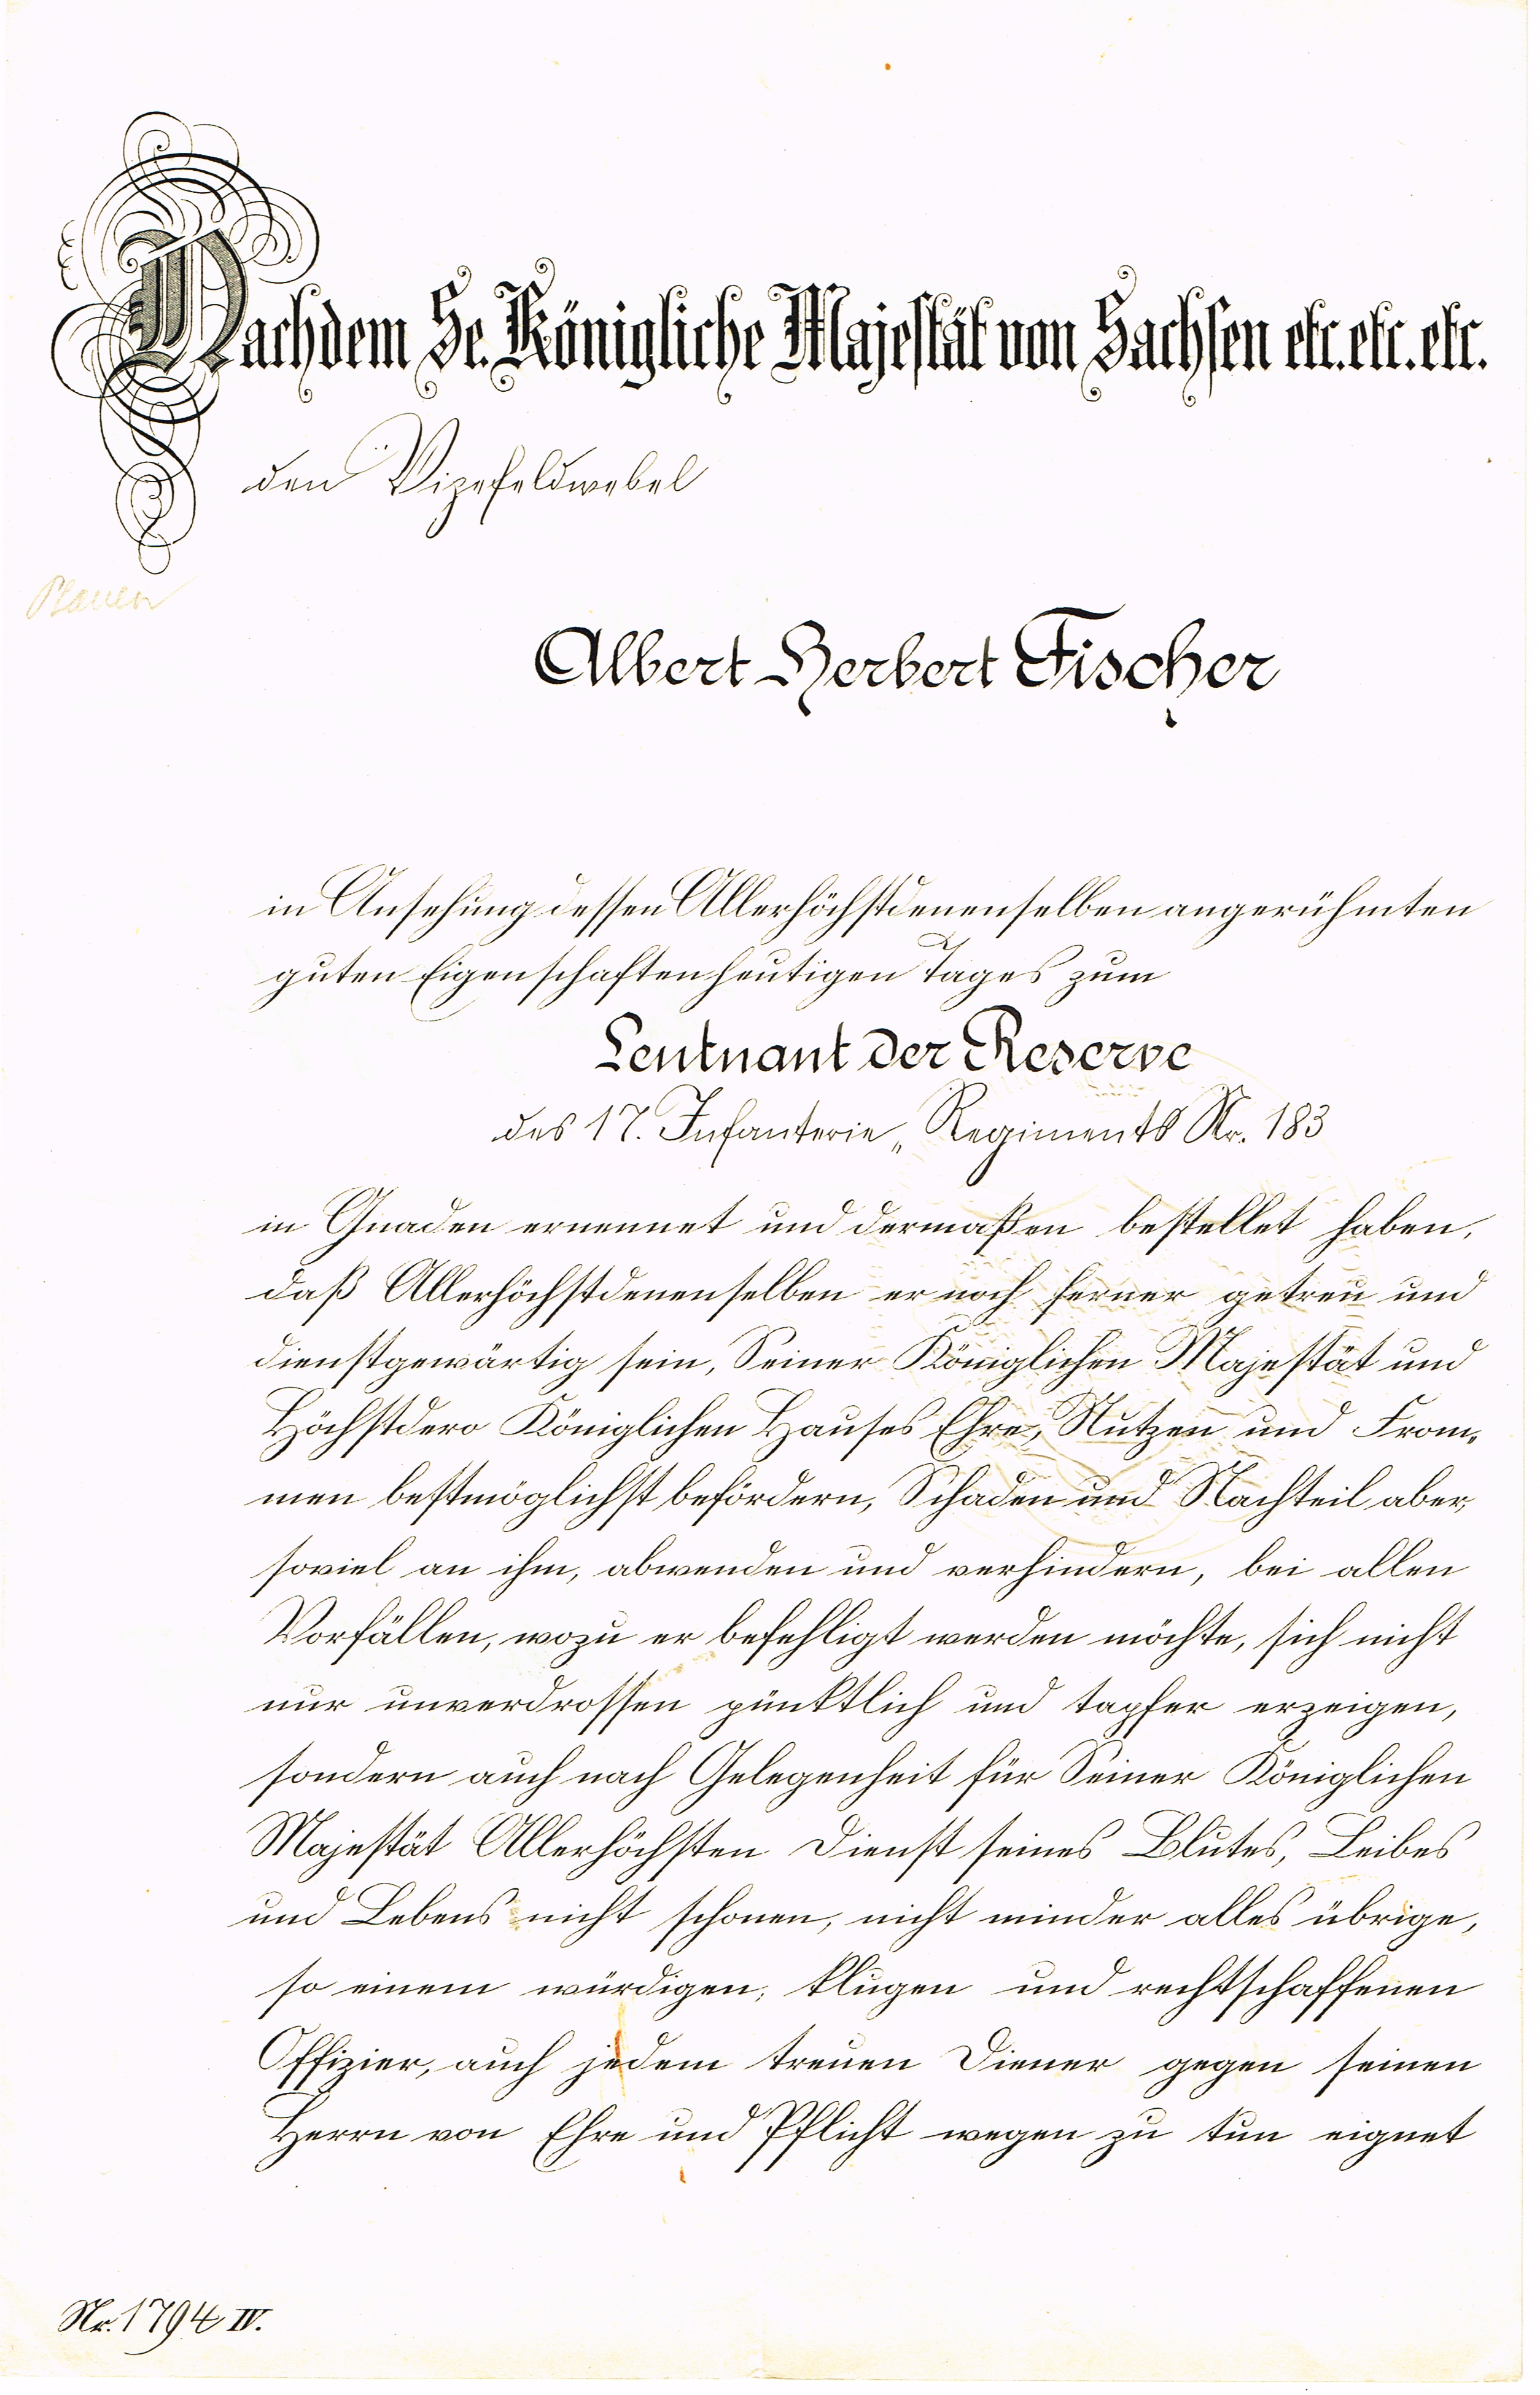 Nachdem Se. Königliche Majestät von Sachsen etc. etc. etc.
den Vizefeldwebel
Plauen
Albert Herbert Fischer
in Ansehung dessen Allerhöchstdenenselben angerühmten
guten Eigenschaften heutigen Tages zum
Leutnant der Reserve
des 17. Infanterie„ Regiments Nr. 183
in Gnaden ernennet und dermaßen bestellet haben,
daß Allerhöchstdenenselben er noch ferner getreu und
dienstgewärtig sein, Seiner Königlichen Majestät und
Höchstdero Königlichen Hauses Ehre, Nutzen und From„
men bestmöglichst befördern, Schaden und Nachteil aber,
soviel an ihm, abwenden und verhindern, bei allen
Vorfällen, wozu er befehligt werden möchte, sich nicht
nur unverdrossen pünktlich und tapfer erzeigen,
sondern auch nach Gelegenheit für Seiner Königlichen
Majestät Allerhöchsten Dienst seines Blutes, Leibes
und Lebens nicht schonen, nicht minder alles übrige,
so einem würdigen, klugen und rechtschaffenen
Offizier, auch jedem treuen Diener gegen seinen
Herrn von Ehre und Pflicht wegen zu tun eignet
Nr. 1794 IV.